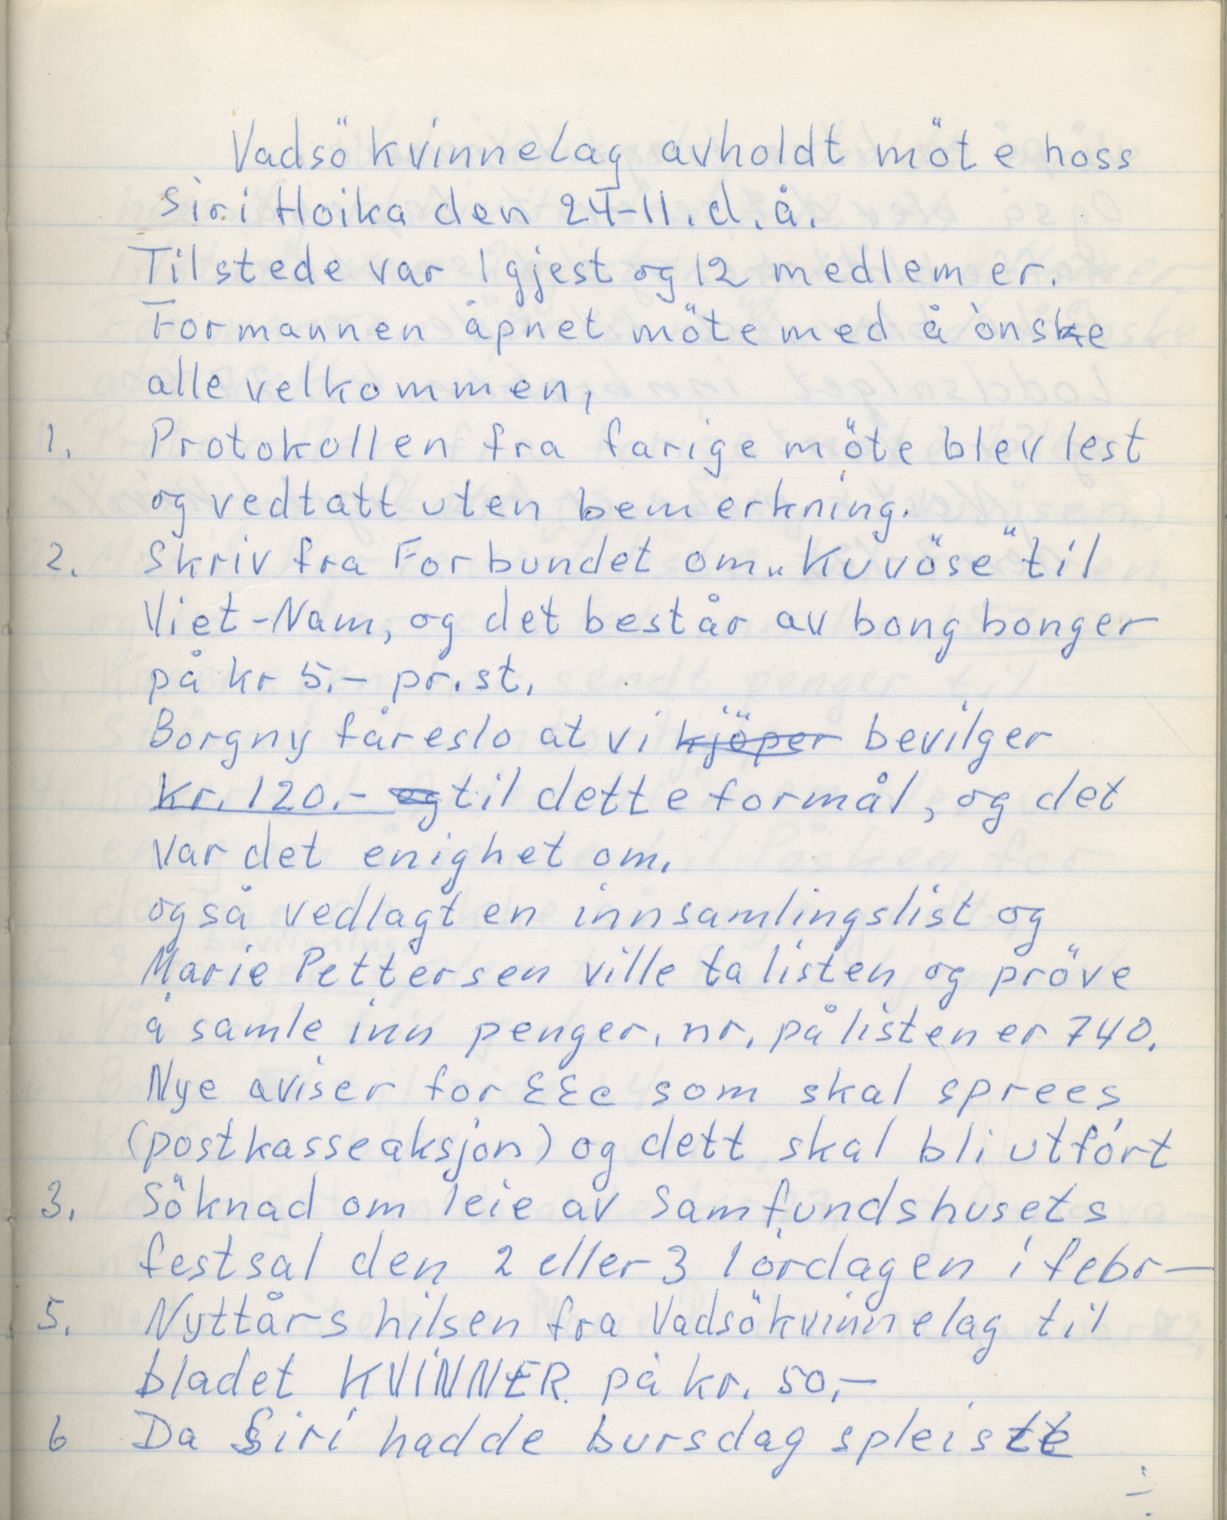 Vadsö kvinnelag avholdt möte hoss
Siri Hoika den 24-11. d.å.
Tilstede var 1 gjest og 12 medlemer.
Formannen åpnet möte med å önske
alle velkommen,
1. Protokollen fra farige möte blev lest
og vedtatt uten bemerkning.
2. Skriv fra Forbundet om „Kuvöse" til
Viet-Nam, og det består av bong bonger
på kr 5.- pr. st.
Borgny fåreslo at vi kjöper bevilger
kr. 120.- og til dette formål, og det
var det enighet om.
også vedlagt en innsamlingslist og
Marie Pettersen ville ta listen og pröve
å samle inn penger. nr. på listen er 740.
Nye aviser for EEc som skal sprees
(postkasseaksjon) og dett skal bli utfört
3. Söknad om leie av Samfundshusets
festsal den 2 eller 3 lördagen i febr—
5. Nyttårs hilsen fra Vadsökvinnelag til
bladet KVINNER. på kr. 50,-
6 Da Siri hadde bursdag spleiste